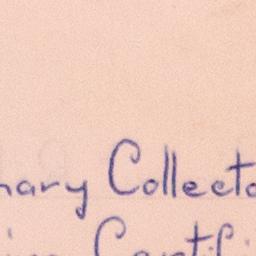 nary Collecto
Certifi